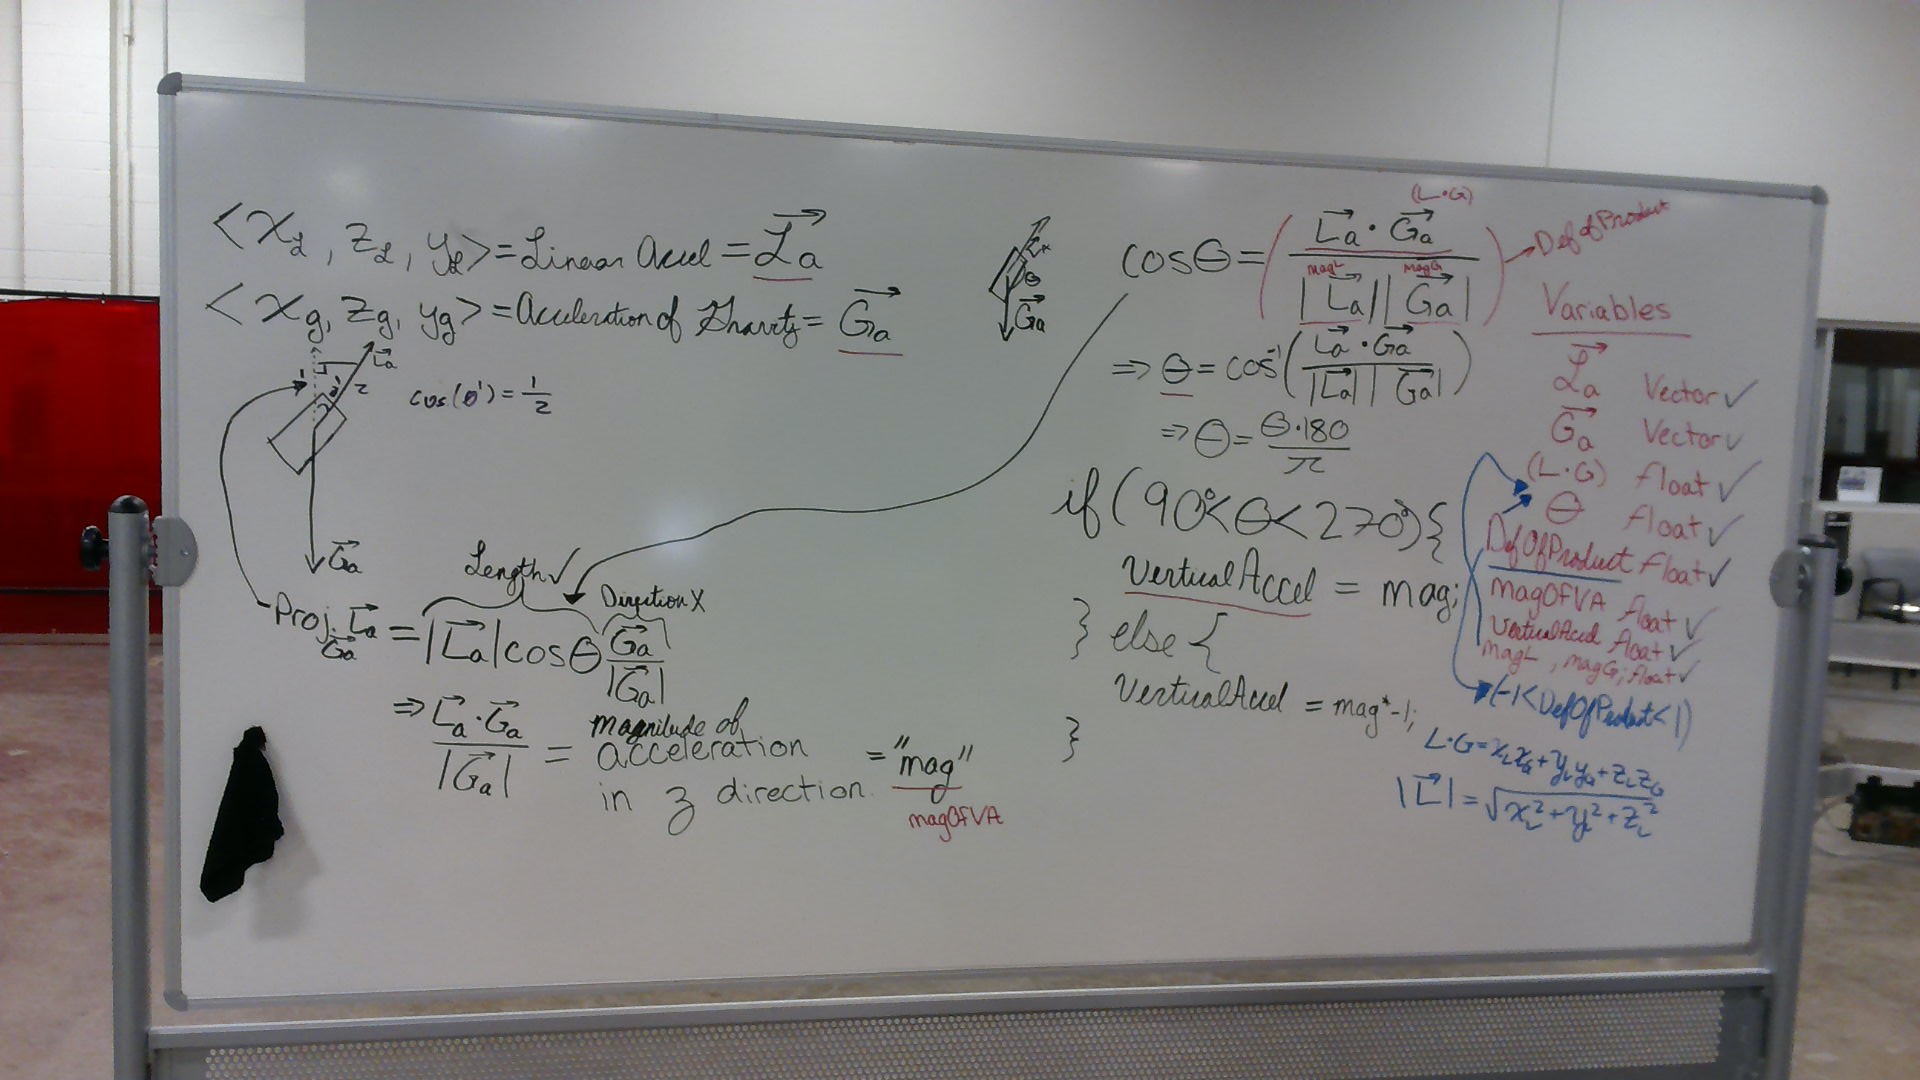 <x_L, z_L, y_L> = Linear Accel = L⃗a
<x_g, z_g, y_g> = Acceleration of Gravity = G⃗a
L⃗a
1
θ'
2
cos(θ') = 1/2
G⃗a
Length ✓
Direction X
Proj. L⃗a G⃗a = |L⃗a| cosθ G⃗a/|G⃗a|
⇒ L⃗a · G⃗a / |G⃗a| = magnitude of acceleration in z direction. = "mag"
magOfVA
θ
G⃗a
(L·G)
cosθ = (L⃗a · G⃗a / |L⃗a||G⃗a|) → DefofProduct
magL magG
⇒ θ = cos⁻¹(L⃗a · G⃗a / |L⃗a||G⃗a|)
⇒ θ = θ·180/π
if (90°<θ<270°){
VerticalAccel = mag;
} else {
VerticalAccel = mag*-1;
}
Variables
L⃗a Vector ✓
G⃗a Vector ✓
(L·G) float ✓
θ float ✓
DefOfProduct float ✓
magOfVA float ✓
VerticalAccel float ✓
magL, magG; float ✓
(-1<DefOfProduct<1)
L·G = x_L x_G + y_L y_G + z_L z_G
|L⃗| = √x_L² + y_L² + z_L²